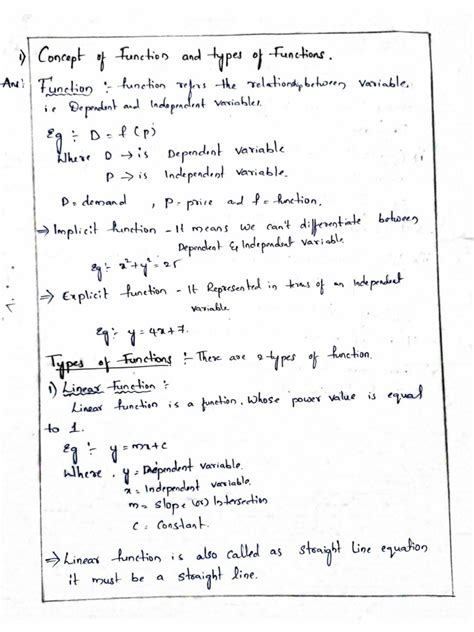 1) Concept of Function and types of Functions.
Ans: Function :- function refers the relationship between variable.
i.e Dependent and Independent variables.
Eg :- D = f (p)
Where D → is Dependent variable
P → is Independent variable.
D = demand , P = price and f = function.
⇒ Implicit function - It means we can't differentiate between
Dependent & Independent variable
Eg :- x² + y² = 25
⇒ Explicit function - It Represented in terms of an independent
variable
Eg :- y = 4x + 7.
Types of Functions :- There are 2 types of function.
1) Linear Function :-
Linear function is a function, whose power value is equal
to 1.
Eg :- y = mx + c
Where, y = Dependent variable.
x = Independent variable
m = slope (or) Intersection
C = Constant.
⇒ Linear function is also called as straight line equation
it must be a straight line.